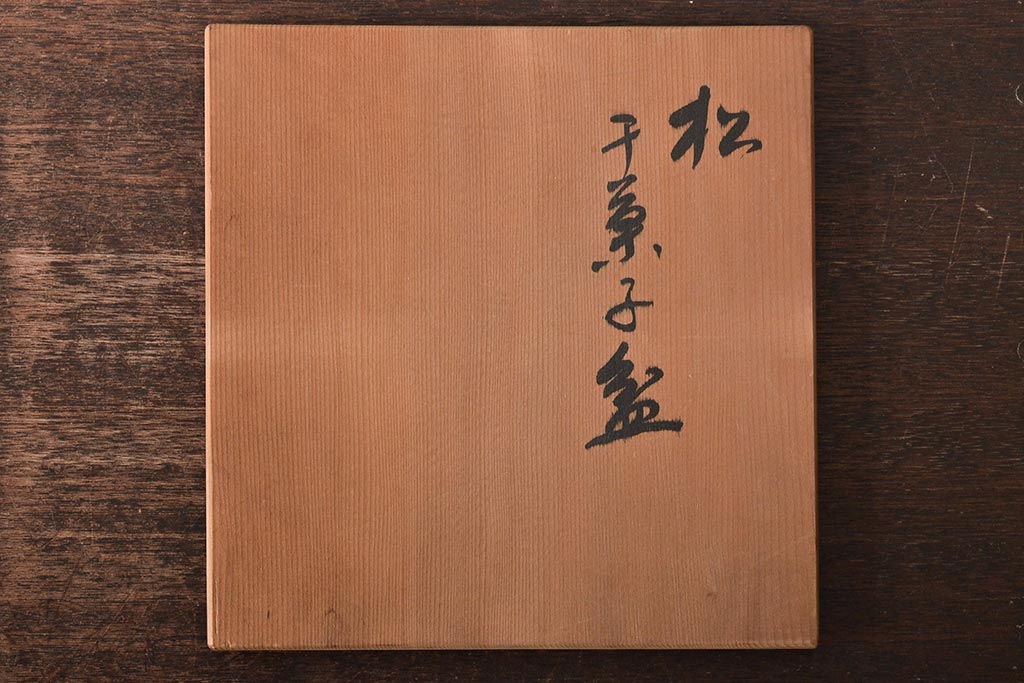 松
干菓子盆